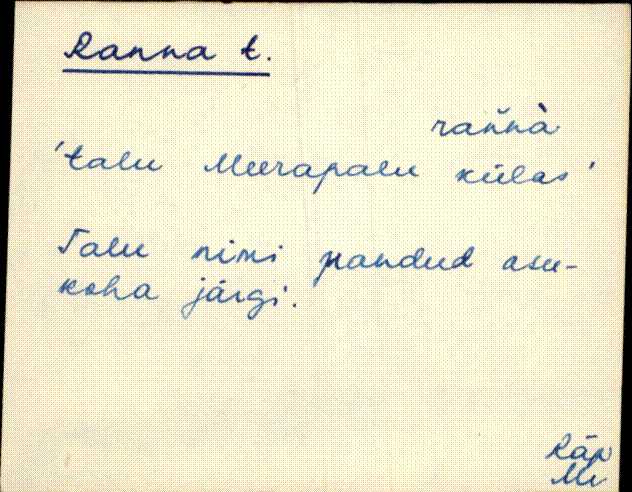 Ranna t.
rañnà
'talu Meerapalu külas'
Talu nimi pandud asu-
koha järgi.
Räp
Me